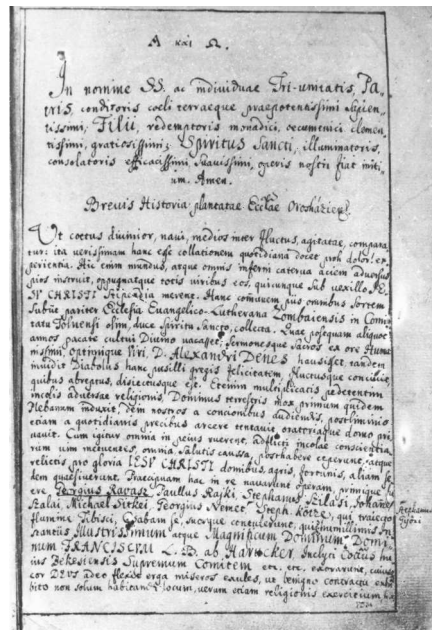 A και Ω.
In nomine SS. ac individuae Tri-unitatis, Pa-
tris, conditoris coeli terraeque praepotentissimi sapien-
tissimi, Filii, redemptoris monadici, oecumenici clemen-
tissimi, gratiosissimi, Spiritus Sancti, illuminatoris,
consolatoris efficacissimi suavissimi, operis nostri fiat initi-
um. Amen.
Brevis Historia plantatae Eccl͠ae Orosháziens̃
Ut coetus divinior, navi, medios inter fluctus, agitatae, compara-
tur: ita verissimam hanc esse collationem quotidiana docet proh dolor! ex-
perientia. Hic enim mundus, atque omnis inferni caterva aciem adversus
pios instruit, oppugnatque totis viribus eos, quicunque sub vexillo IE-
SV CHRISTI stipendia merent. Hanc comunem piis omnibus sortem
subiit pariter Ecclesia Evangelico-Lutherana Zombaiensis in Comi-
tatu Tolnensi olim, duce Spiritu Sancto, collecta. Quae posquam aliquot
annos pacate cultui Divino vacasset, sermonesque sacros ex ore Huma-
nissimi, optimique Viri, D. Alexandri Dénes hausisset, tandem
invidit Diabolus hanc pusilli gregis felicitatem fluctusque concivit,
quibus abreptus, disiectusque est. Etenim multiplicatis pedetentim
incolis adversae religionis, Dominus terrestris mox primum quidem
Plebanum induxit, dein nostros a concionibus audiendis, postliminio
etiam a quotidianis precibus arcere tentavit, oratoriaque domo pri-
vavit. Cum igitur omnia in peius ruerent, adflicti incolae conscientia-
rum metuentes, omnia salutis caussa, posthabere ceperunt, atque
relictis pro gloria IESV CHRISTI domibus, agris, fortunis, aliam se-
dem quaesiverunt. Praecipuam hac in re navarunt operam, primique fu-
ere Georgius Ravasz, Paullus Rajki, Stephanus Szilasi, Johannes
Szalai, Michael Sitkei, Georgius Nemet, Steph. Kötze, qui traiecto
flumine Tibisci, Csabam se, suorque contulerunt,
Illustrissimum atque Magnificum Dominum Domi-
num FRANCISCUM L. B. ab Harucker Inclyti Co͠ttus hu-
ius Békesiensis Supremum Comitem etc. etc. exorarunt, cuius
cor DEUS adeo flexit erga miseros exules, ut benigno contractu exhi-
bito non solum habitandi locum, verum etiam religionis exercitium
Stephanus
Györi